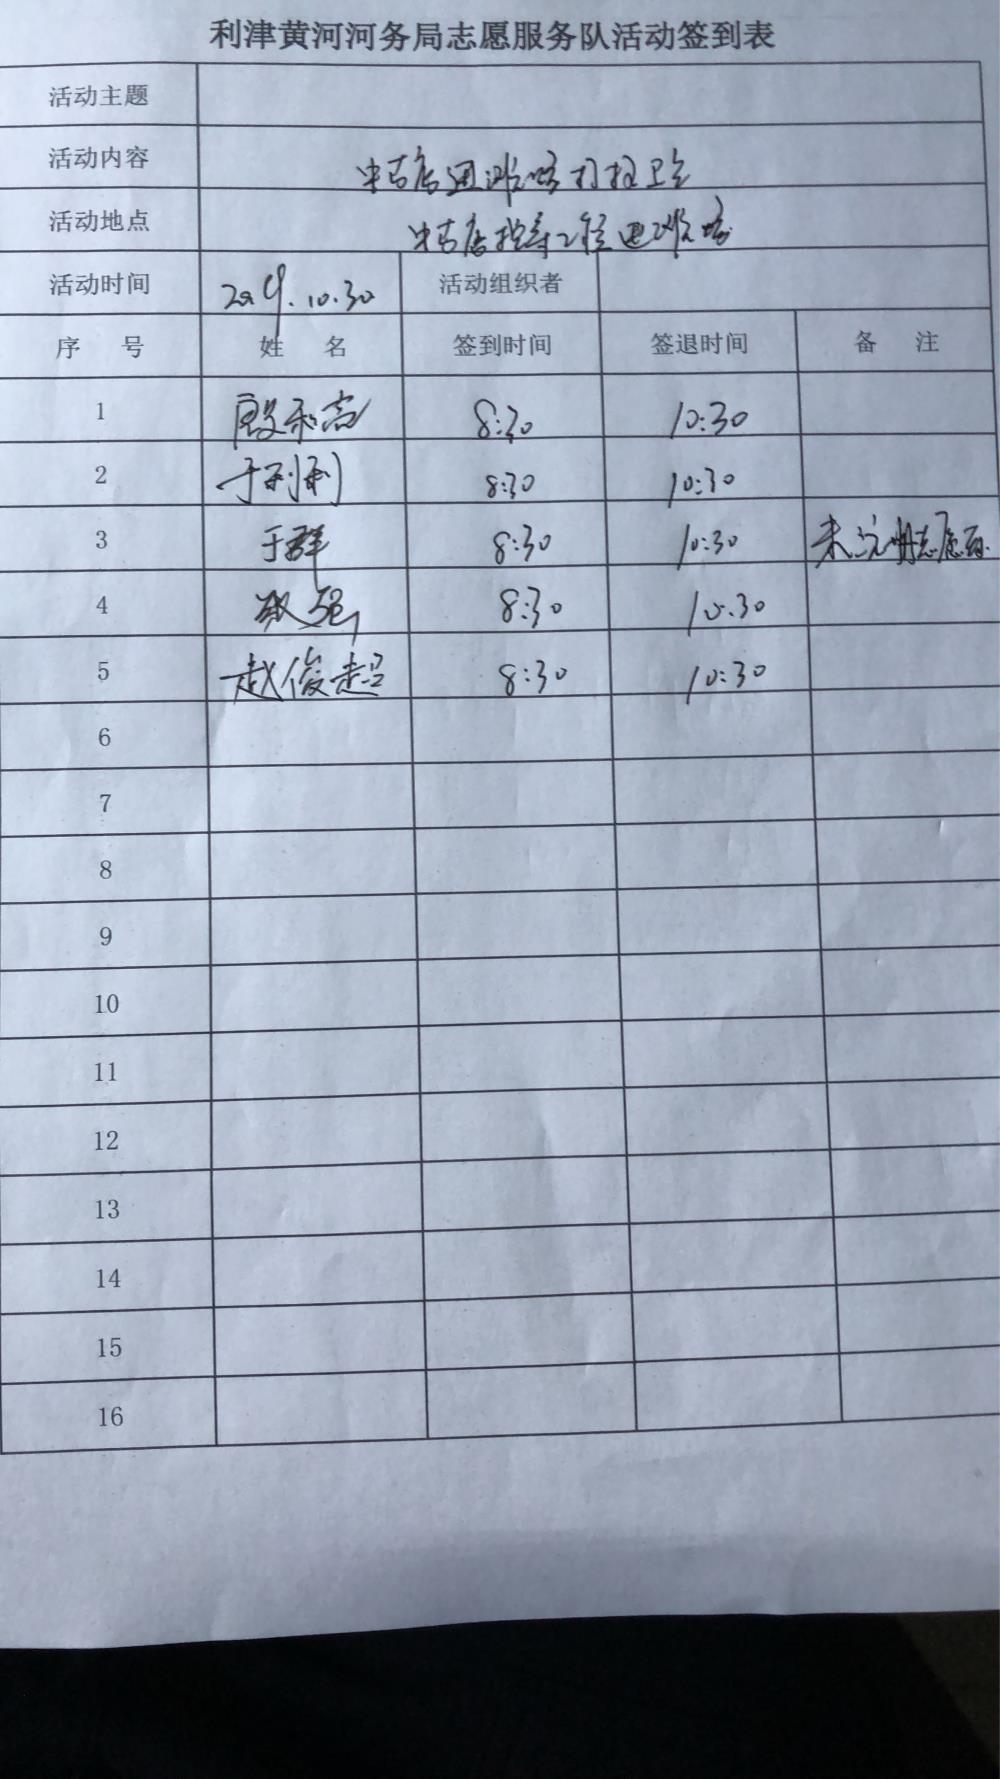 利津黄河河务局志愿服务队活动签到表
活动主题
活动内容 中古店进滩路打扫卫生
活动地点 中古店控导工程进滩路
活动时间 2019.10.30 活动组织者
序 号 姓 名 签到时间 签退时间 备 注
1 8:30 10:30
2 于利利 8:30 10:30
3 于群 8:30 10:30 未注册志愿者
4 8:30 10:30
5 赵俊超 8:30 10:30
6
7
8
9
10
11
12
13
14
15
16